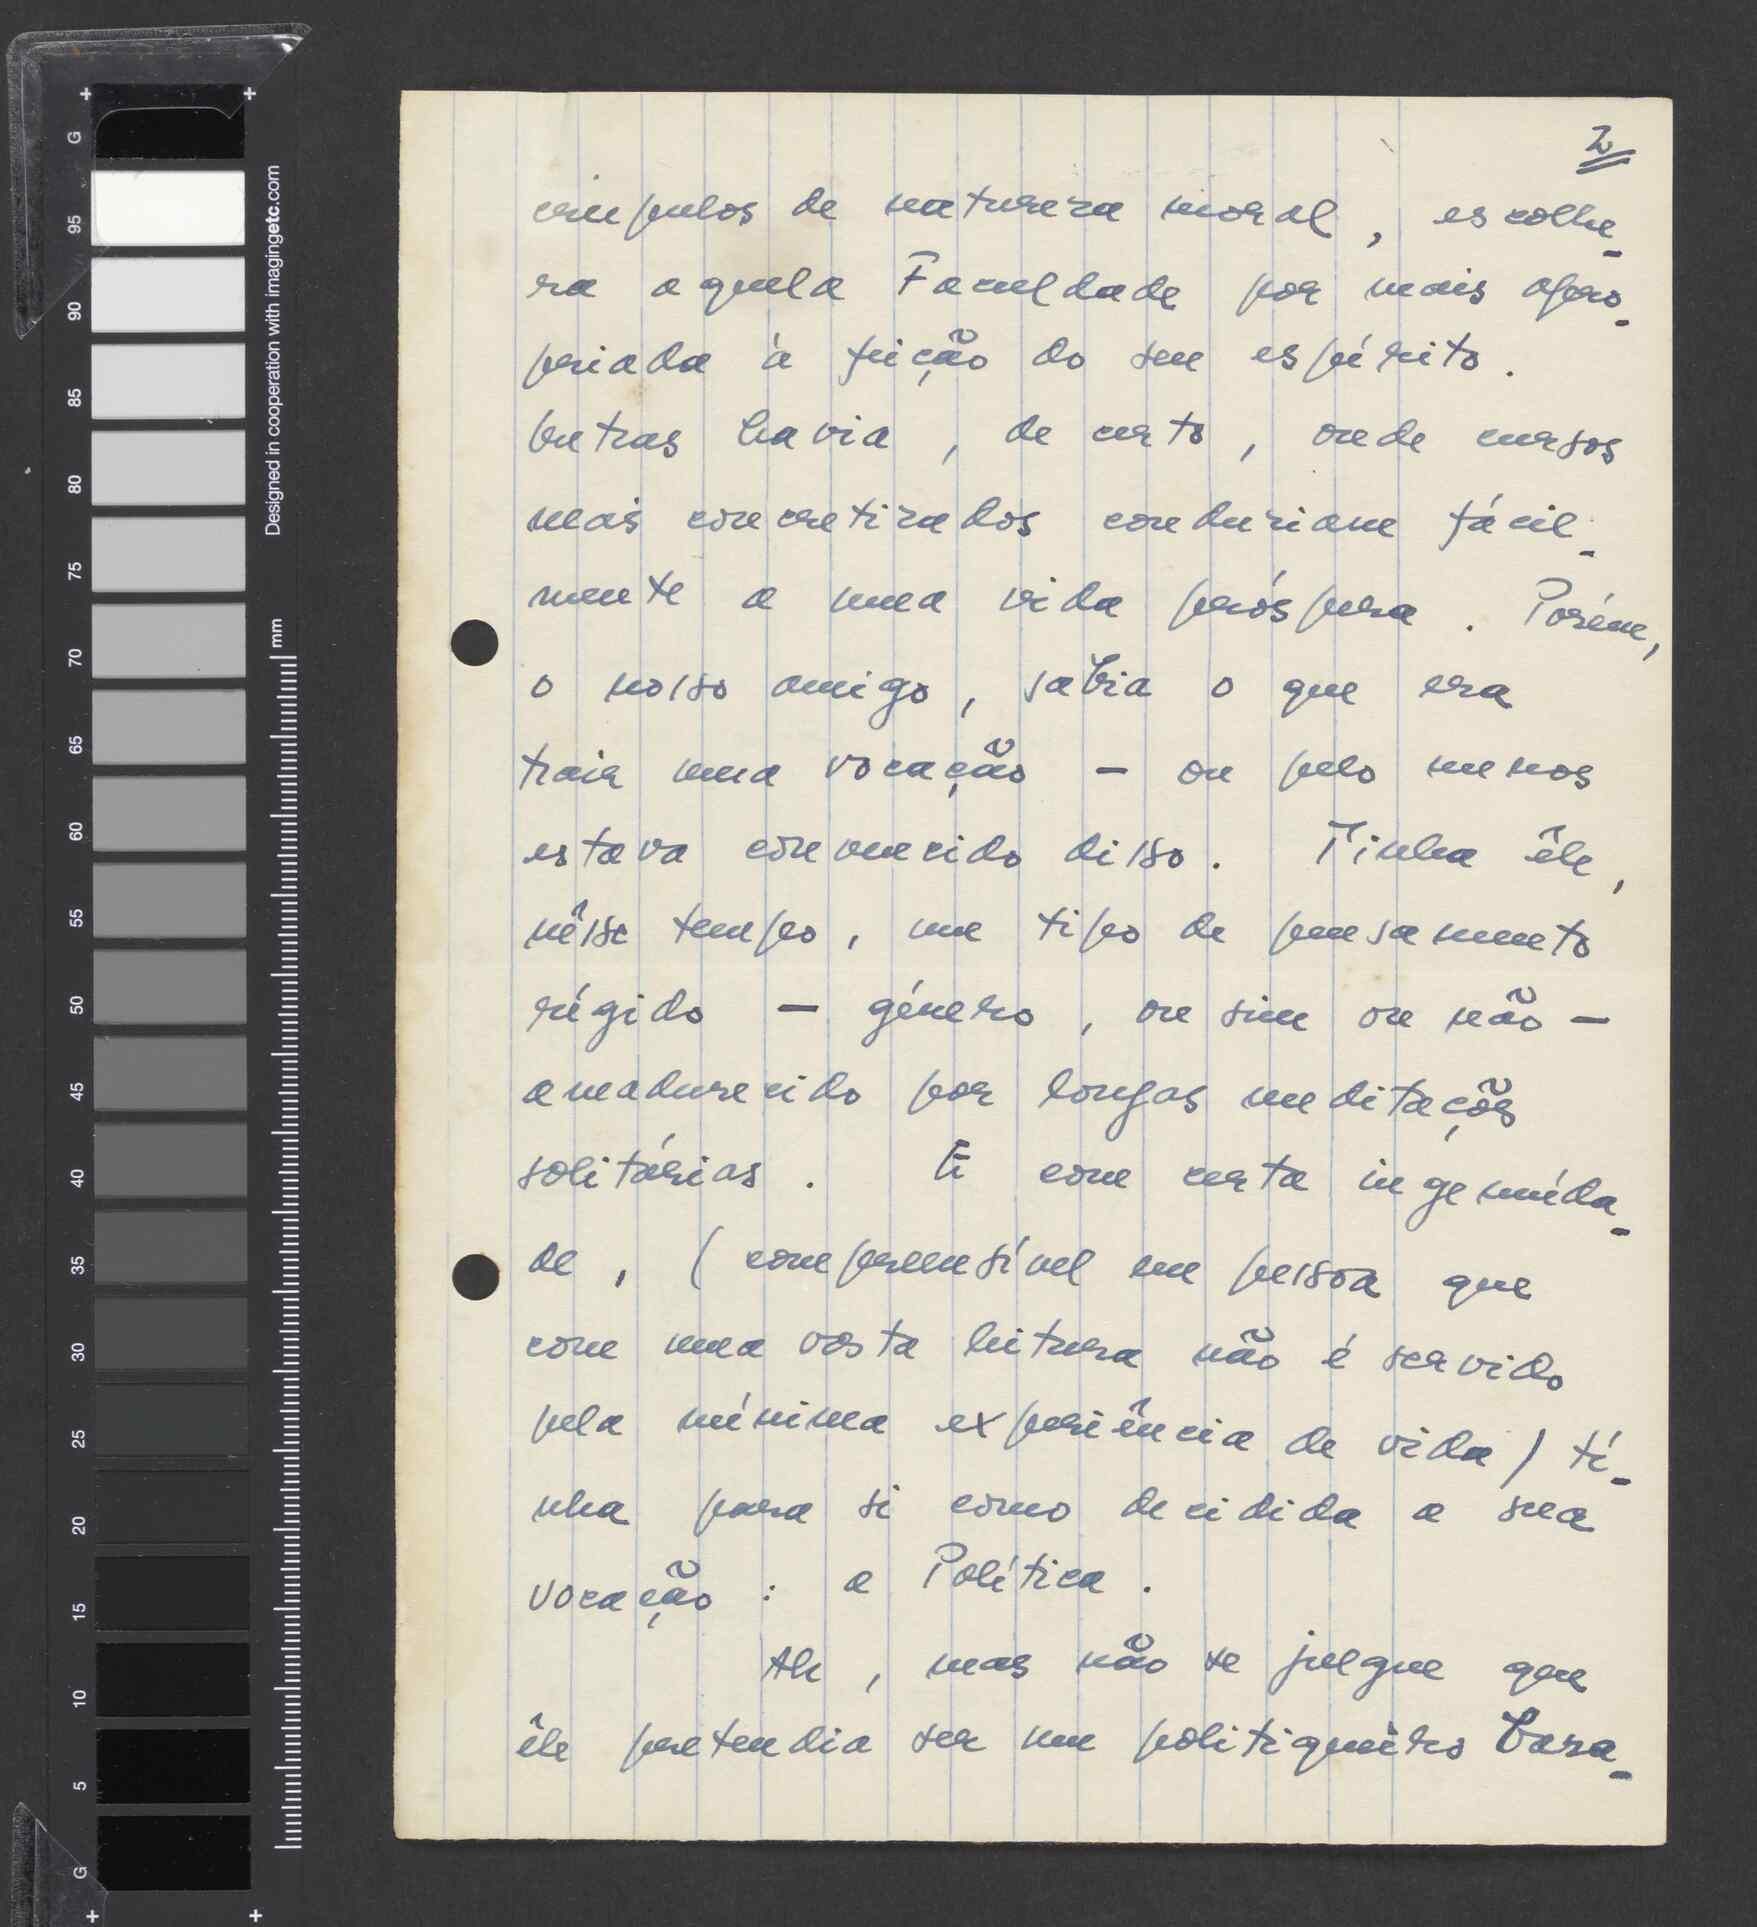 2
crúpulos de natureza moral, escolhe-
ra aquela Faculdade por mais apro-
priada à feição do seu espírito.
Outras havia, de certo, onde cursos
mais concretizados conduziam fácil-
mente a uma vida próspera. Porém,
o nosso amigo, sabia o que era
trair uma vocação — ou pelo menos
estava convencido disso. Tinha êle,
nêsse tempo, um tipo de pensamento
rígido — género, ou sim ou não —
amadurecido por longas meditações
solitárias. E com certa ingenuida-
de, (compreensível em pessoa que
com uma vasta leitura não é servido
pela mínima experiência de vida) ti-
nha para si como decidida a sua
vocação: a Política.
Ah, mas não se julgue que
êle pretendia ser um politiqueiro bara-
Designed in cooperation with imagingetc.com
mm
G
95
90
85
80
75
70
65
60
55
50
45
40
35
30
25
20
15
10
5
G